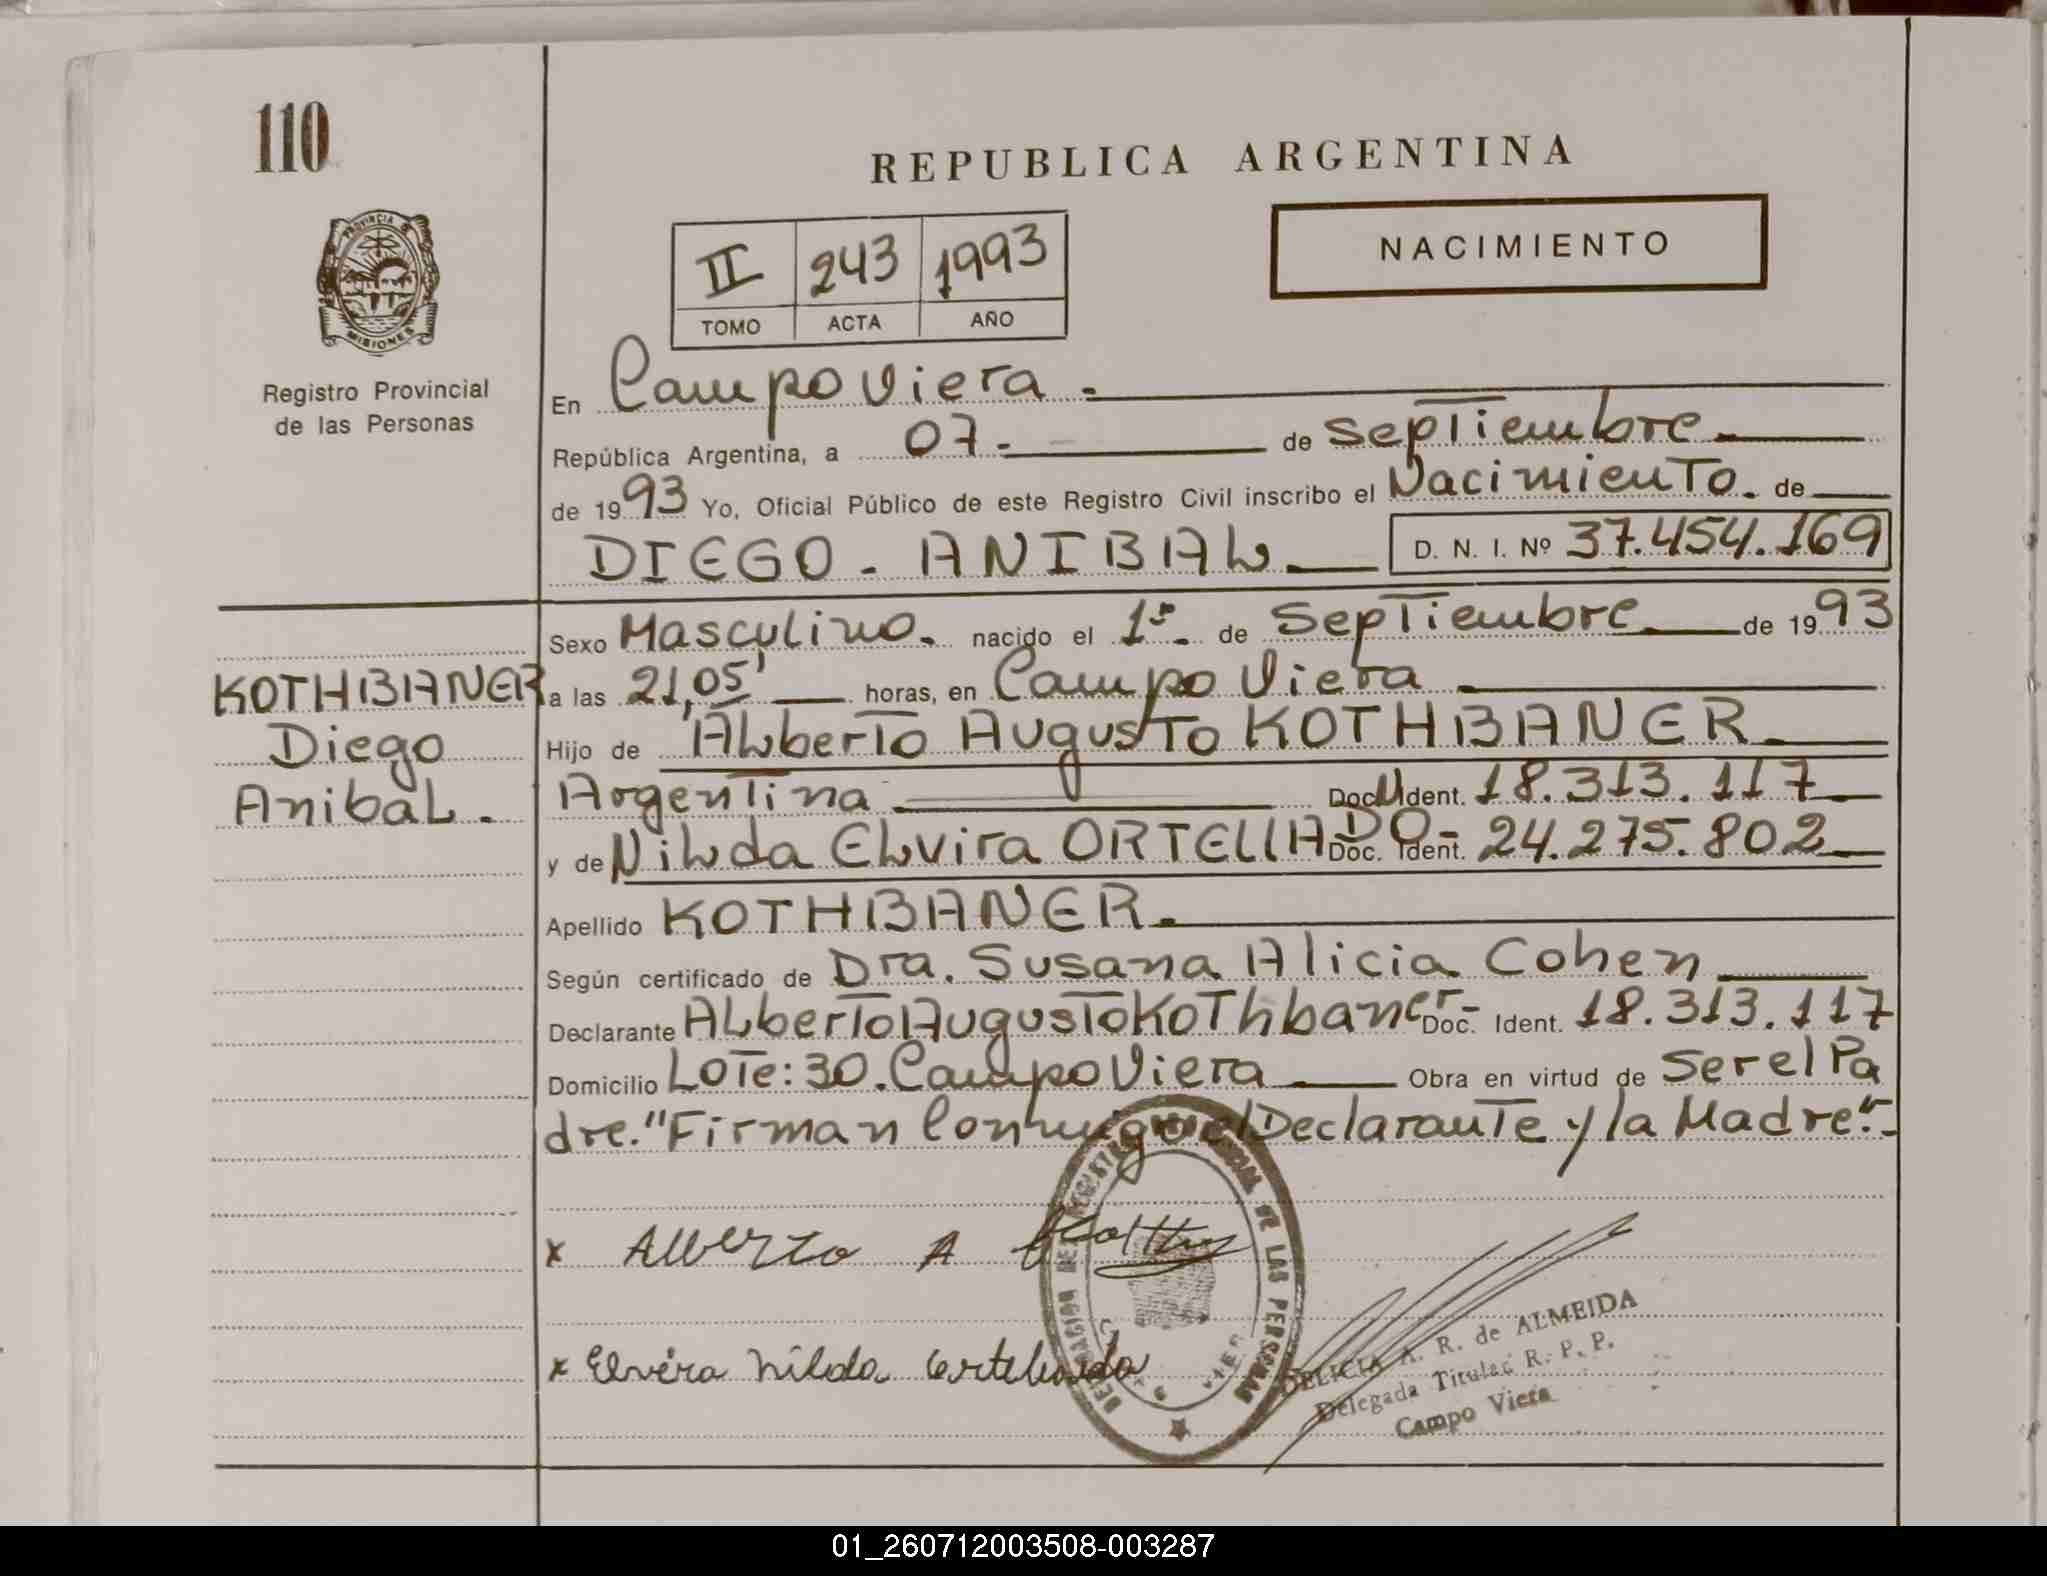 110
REPUBLICA ARGENTINA
NACIMIENTO
II 243 1993
TOMO ACTA AÑO
PROVINCIA DE MISIONES
Registro Provincial
de las Personas
En Campo Viera.
República Argentina, a 07. de Septiembre.
de 1993 Yo, Oficial Público de este Registro Civil inscribo el Nacimiento. de
DIEGO - ANIBAL D. N. I. Nº 37.454.169
KOTHBANER
Diego
Anibal.
Sexo Masculino. nacido el 1º. de Septiembre de 1993
a las 21,05' horas, en Campo Viera
Hijo de Alberto Augusto KOTHBANER.
Argentina Doc. Ident. 18.313.117
y de Nilda Elvira ORTELLADO- Doc. Ident. 24.275.802
Apellido KOTHBANER.
Según certificado de Dra. Susana Alicia Cohen
Declarante Alberto Augusto Kothbaner- Doc. Ident. 18.313.117
Domicilio Lote: 30. Campo Viera Obra en virtud de Ser el Pa
dre. "Firman Conmigo el Declarante y la Madre".-
x Alberto A
x Elvira Nilda
DE LAS PERSONAS
DELICIA A. R. de ALMEIDA
Delegada Titular R. P. P.
Campo Viera
01_260712003508-003287